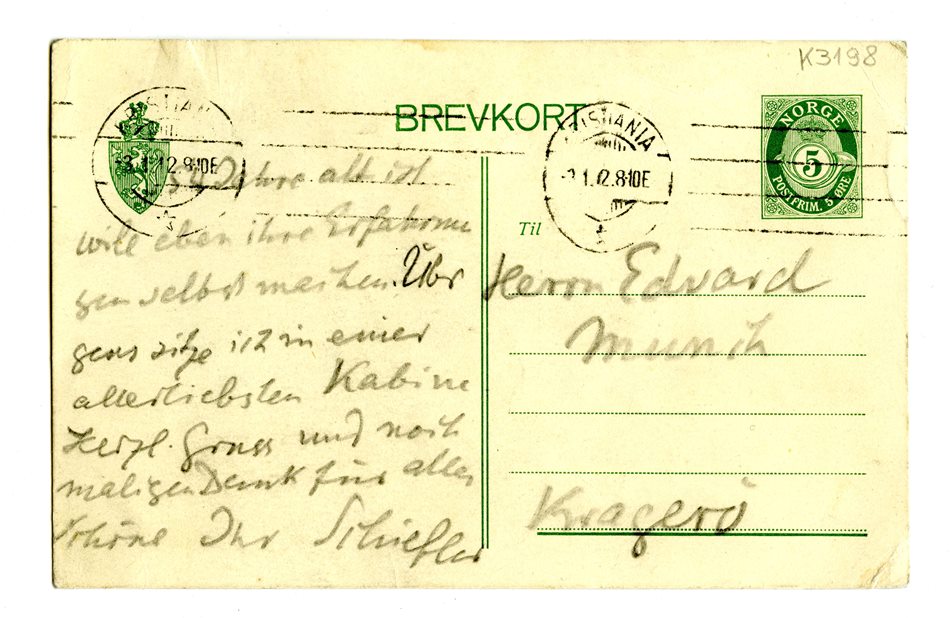 K3198
BREVKORT
KRISTIANIA
-3.1.12.8-10E
KRISTIANIA
-3.1.12.8-10E
NORGE
5
POSTFRIM. 5 ØRE
54 Jahre alt ist
will eben ihre Erfahrun
gen selbst machen. Übr
gens sitze ich in einer
allerliebsten Kabine
Herzl. Gruss und noch
maligen Dank für alles
Schöne Ihr Schiefler
Til
Herrn Edvard
Munch
Kragerö